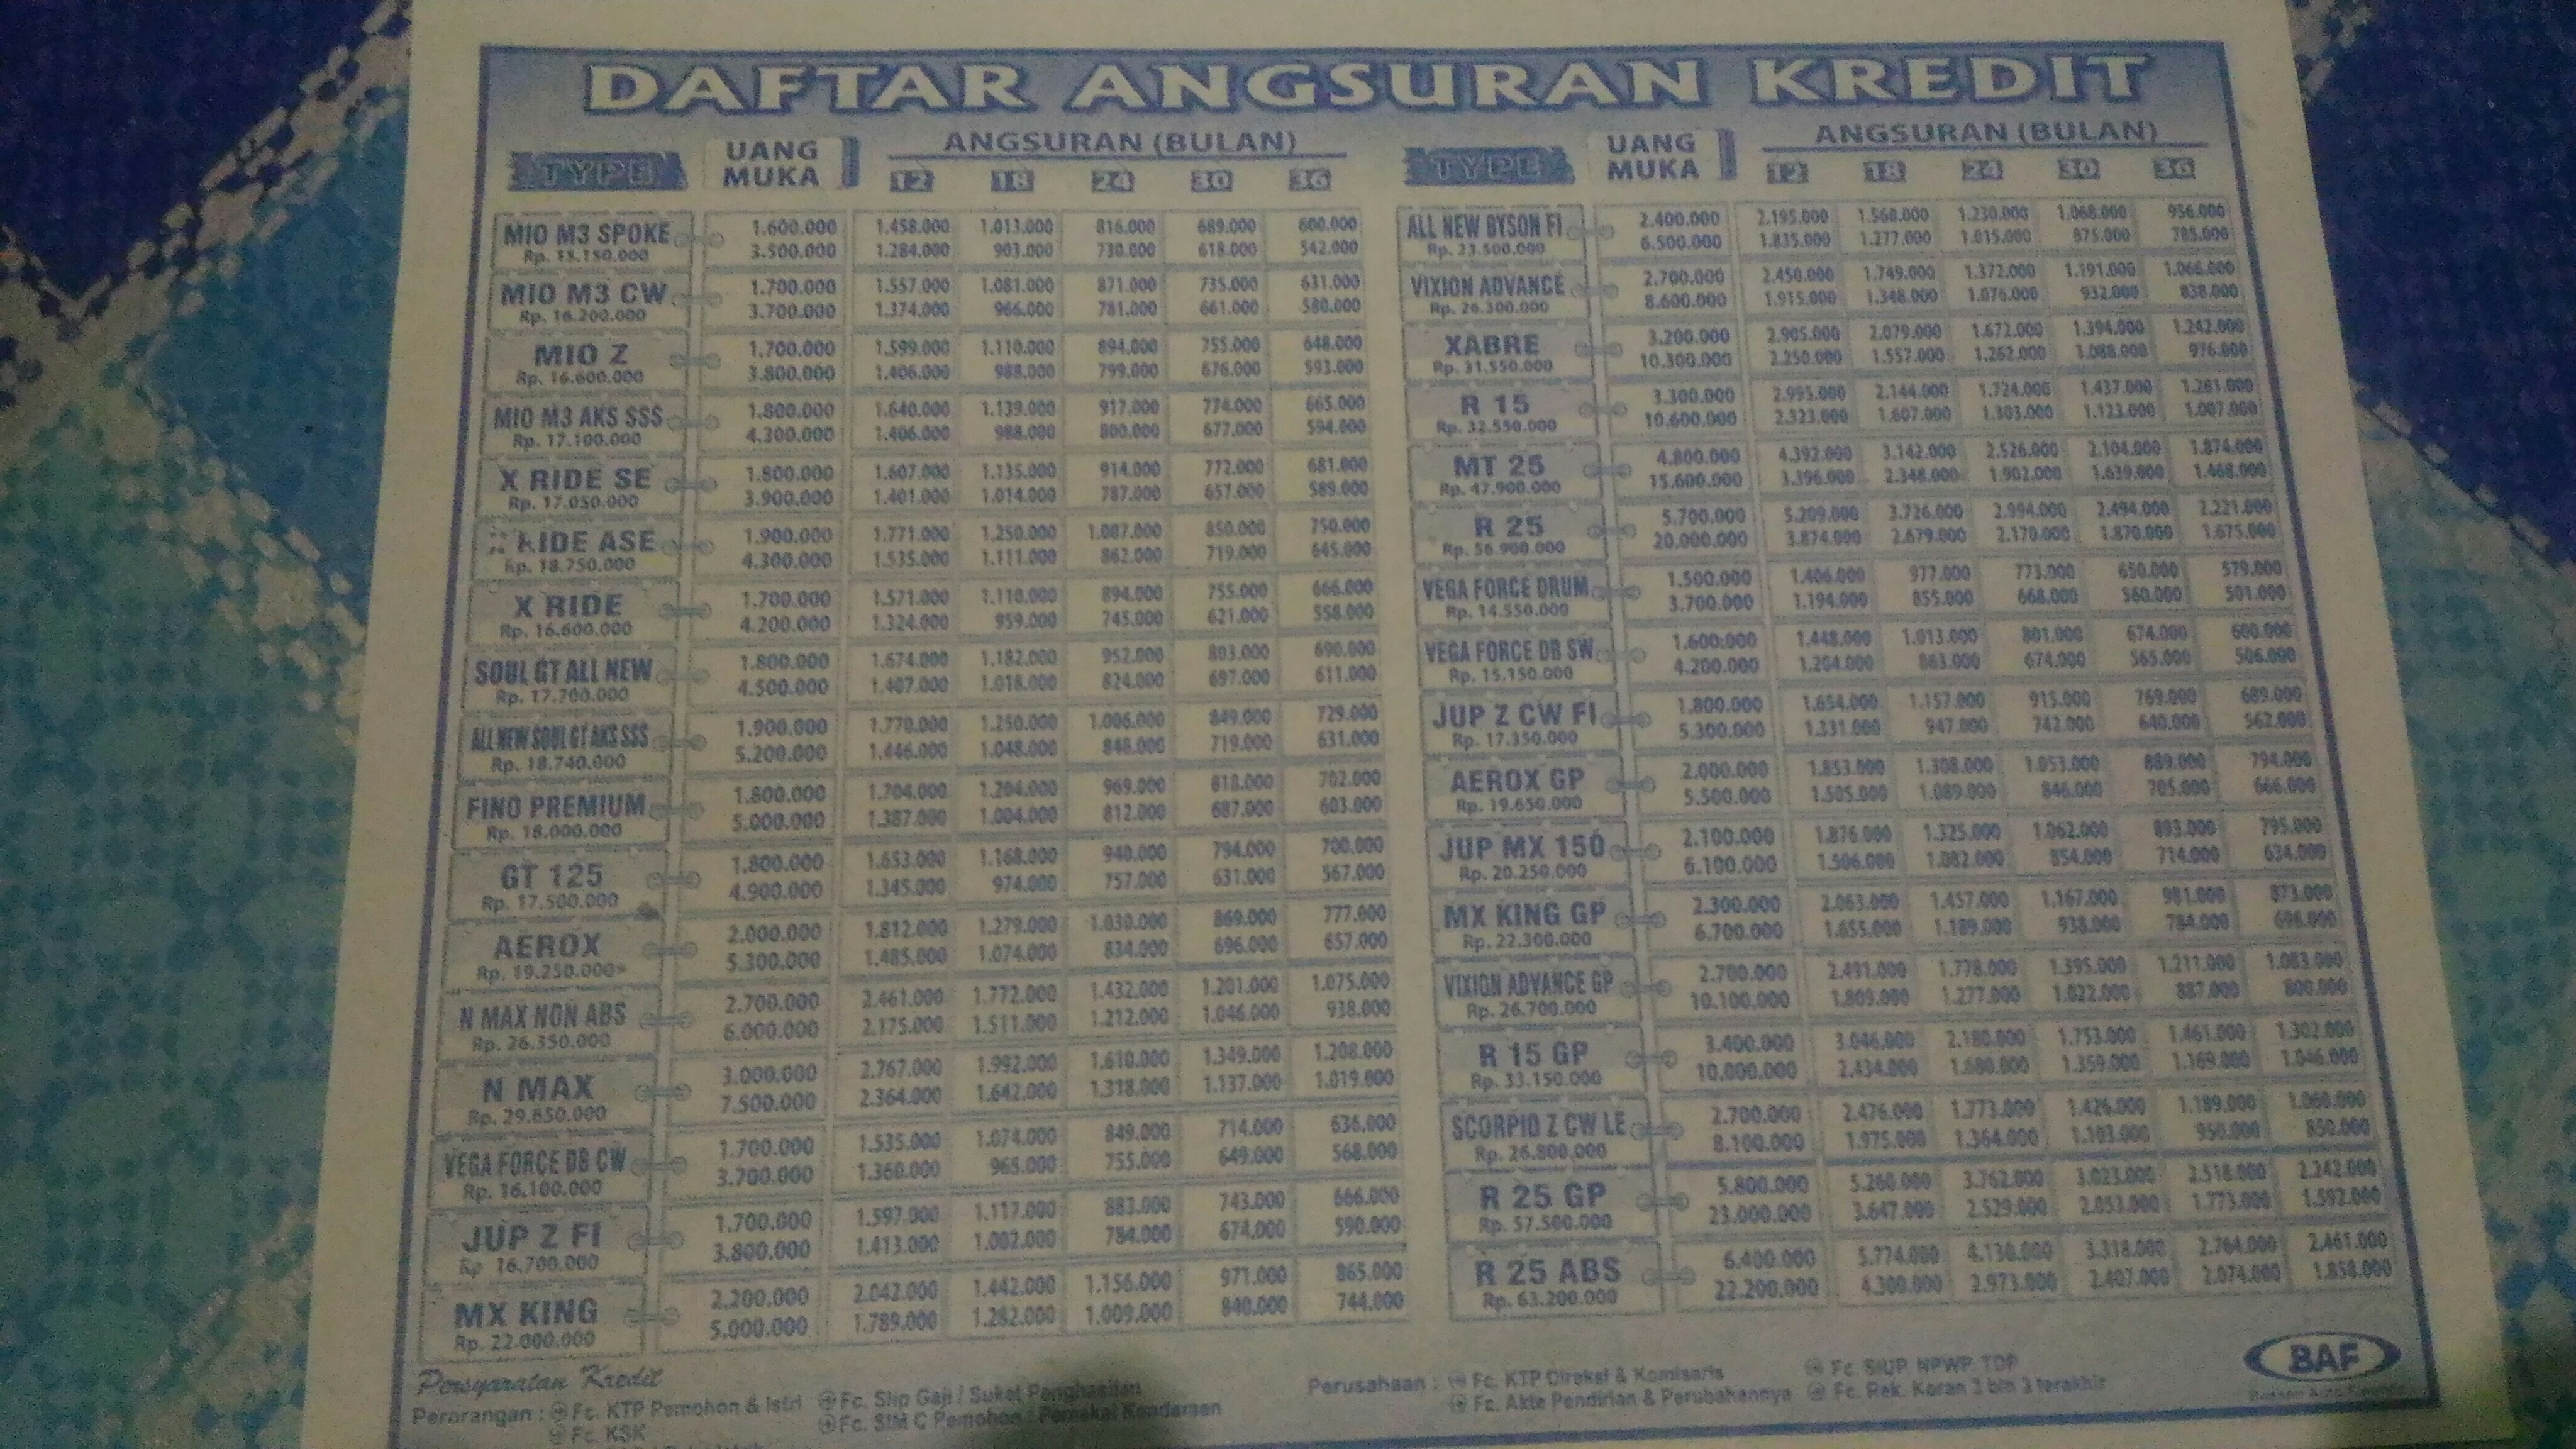 DAFTAR ANGSURAN KREDIT
TYPE UANG MUKA ANGSURAN (BULAN)
12 18 24 30 36
MIO M3 SPOKE 1.600.000 1.458.000 1.013.000 816.000 689.000 600.000
Rp. 15.150.000 3.500.000 1.284.000 903.000 730.000 618.000 542.000
MIO M3 CW 1.700.000 1.557.000 1.081.000 871.000 735.000 631.000
Rp. 16.200.000 3.700.000 1.374.000 966.000 781.000 661.000 580.000
MIO Z 1.700.000 1.599.000 1.110.000 894.000 755.000 648.000
Rp. 16.600.000 3.800.000 1.406.000 988.000 799.000 676.000 593.000
MIO M3 AKS SSS 1.800.000 1.640.000 1.139.000 917.000 774.000 665.000
Rp. 17.100.000 4.300.000 1.406.000 988.000 800.000 677.000 594.000
X RIDE SE 1.800.000 1.607.000 1.135.000 914.000 772.000 681.000
Rp. 17.050.000 3.900.000 1.401.000 1.014.000 787.000 657.000 589.000
RIDE ASE 1.900.000 1.771.000 1.250.000 1.007.000 850.000 750.000
Rp. 18.750.000 4.300.000 1.535.000 1.111.000 862.000 719.000 645.000
X RIDE 1.700.000 1.571.000 1.110.000 894.000 755.000 666.000
Rp. 16.600.000 4.200.000 1.324.000 959.000 745.000 621.000 558.000
SOUL GT ALL NEW 1.800.000 1.674.000 1.182.000 952.000 803.000 690.000
Rp. 17.700.000 4.500.000 1.407.000 1.018.000 824.000 697.000 611.000
ALL NEW SOUL GT AKS SSS 1.900.000 1.770.000 1.250.000 1.006.000 849.000 729.000
Rp. 18.740.000 5.200.000 1.446.000 1.048.000 848.000 719.000 631.000
FINO PREMIUM 1.800.000 1.704.000 1.204.000 969.000 818.000 702.000
Rp. 18.000.000 5.000.000 1.387.000 1.004.000 812.000 687.000 603.000
GT 125 1.800.000 1.653.000 1.168.000 940.000 794.000 700.000
Rp. 17.500.000 4.900.000 1.345.000 974.000 757.000 631.000 567.000
AEROX 2.000.000 1.812.000 1.279.000 1.030.000 869.000 777.000
Rp. 19.250.000 5.300.000 1.485.000 1.074.000 834.000 696.000 657.000
N MAX NON ABS 2.700.000 2.461.000 1.772.000 1.432.000 1.201.000 1.075.000
Rp. 26.350.000 6.000.000 2.175.000 1.511.000 1.212.000 1.046.000 938.000
N MAX 3.000.000 2.767.000 1.992.000 1.610.000 1.349.000 1.208.000
Rp. 29.650.000 7.500.000 2.364.000 1.642.000 1.318.000 1.137.000 1.019.000
VEGA FORCE DB CW 1.700.000 1.535.000 1.074.000 849.000 714.000 636.000
Rp. 16.100.000 3.700.000 1.360.000 965.000 755.000 649.000 568.000
JUP Z FI 1.700.000 1.597.000 1.117.000 883.000 743.000 666.000
Rp 16,700.000 3.800.000 1.413.000 1.002.000 784.000 674.000 590.000
MX KING 2.200.000 2.042.000 1.442.000 1.156.000 971.000 865.000
Rp. 22.000.000 5.000.000 1.789.000 1.282.000 1.009.000 840.000 744.000
TYPE UANG MUKA ANGSURAN (BULAN)
12 18 24 30 36
ALL NEW BYSON FI 2.400.000 2.195.000 1.568.000 1.230.000 1.068.000 956.000
Rp. 23.500.000 6.500.000 1.835.000 1.277.000 1.015.000 875.000 785.000
VIXION ADVANCE 2.700.000 2.450.000 1.749.000 1.372.000 1.191.000 1.066.000
Rp. 26.300.000 8.600.000 1.915.000 1.348.000 1.076.000 932.000 838.000
XABRE 3.200.000 2.905.000 2.079.000 1.672.000 1.394.000 1.242.000
Rp. 31.550.000 10.300.000 2.250.000 1.557.000 1.262.000 1.088.000 976.000
R 15 3.300.000 2.995.000 2.144.000 1.724.000 1.437.000 1.281.000
Rp. 32.550.000 10.600.000 2.323.000 1.607.000 1.303.000 1.123.000 1.007.000
MT 25 4.800.000 4.392.000 3.142.000 2.526.000 2.104.000 1.874.000
Rp. 47.900.000 15.600.000 3.396.000 2.348.000 1.902.000 1.639.000 1.468.000
R 25 5.700.000 5.209.000 3.726.000 2.994.000 2.494.000 2.221.000
Rp. 56.900.000 20.000.000 3.874.000 2.679.000 2.170.000 1.870.000 1.675.000
VEGA FORCE DRUM 1.500.000 1.406.000 977.000 773.000 650.000 579.000
Rp. 14.550.000 3.700.000 1.194.000 855.000 668.000 560.000 501.000
VEGA FORCE DB SW 1.600.000 1.448.000 1.013.000 801.000 674.000 600.000
Rp. 15.150.000 4.200.000 1.204.000 863.000 674.000 565.000 506.000
JUP Z CW FI 1.800.000 1.654.000 1.157.000 915.000 769.000 689.000
Rp. 17.350.000 5.300.000 1.331.000 947.000 742.000 640.000 562.000
AEROX GP 2.000.000 1.853.000 1.308.000 1.053.000 889.000 794.000
Rp. 19.650.000 5.500.000 1.505.000 1.089.000 846.000 705.000 666.000
JUP MX 150 2.100.000 1.876.000 1.325.000 1.062.000 893.000 795.000
Rp. 20.250.000 6.100.000 1.506.000 1.082.000 854.000 714.000 634.000
MX KING GP 2.300.000 2.063.000 1.457.000 1.167.000 981.000 873.000
Rp. 22.300.000 6.700.000 1.655.000 1.189.000 938.000 784.000 696.000
VIXION ADVANCE GP 2.700.000 2.491.000 1.778.000 1.395.000 1.211.000 1.083.000
Rp. 26.700.000 10.100.000 1.809.000 1.277.000 1.022.000 887.000 800.000
R 15 GP 3.400.000 3.046.000 2.180.000 1.753.000 1.461.000 1.302.000
Rp. 33.150.000 10.000.000 2.434.000 1.680.000 1.359.000 1.169.000 1.046.000
SCORPIO Z CW LE 2.700.000 2.476.000 1.773.000 1.426.000 1.189.000 1.060.000
Rp. 26.800.000 8.100.000 1.975.000 1.364.000 1.103.000 950.000 850.000
R 25 GP 5.800.000 5.260.000 3.762.000 3.023.000 2.518.000 2.242.000
Rp. 57.500.000 23.000.000 3.647.000 2.529.000 2.053.000 1.773.000 1.592.000
R 25 ABS 6.400.000 5.774.000 4.130.000 3.318.000 2.764.000 2.461.000
Rp. 63.200.000 22.200.000 4.300.000 2.973.000 2.407.000 2.074.000 1.858.000
Persyaratan Kredit
Perorangan : Fc. KTP Pemohon & Istri Fc. Slip Gaji / Suket Penghasilan
Fc. KSK Fc. SIM C Pemohon / Pemakai Kendaraan
Perusahaan : Fc. KTP Direksi & Komisaris Fc. SIUP NPWP TDP
Fc. Akte Pendirian & Perubahannya Fc. Rek. Koran 3 bln 3 terakhir
BAF